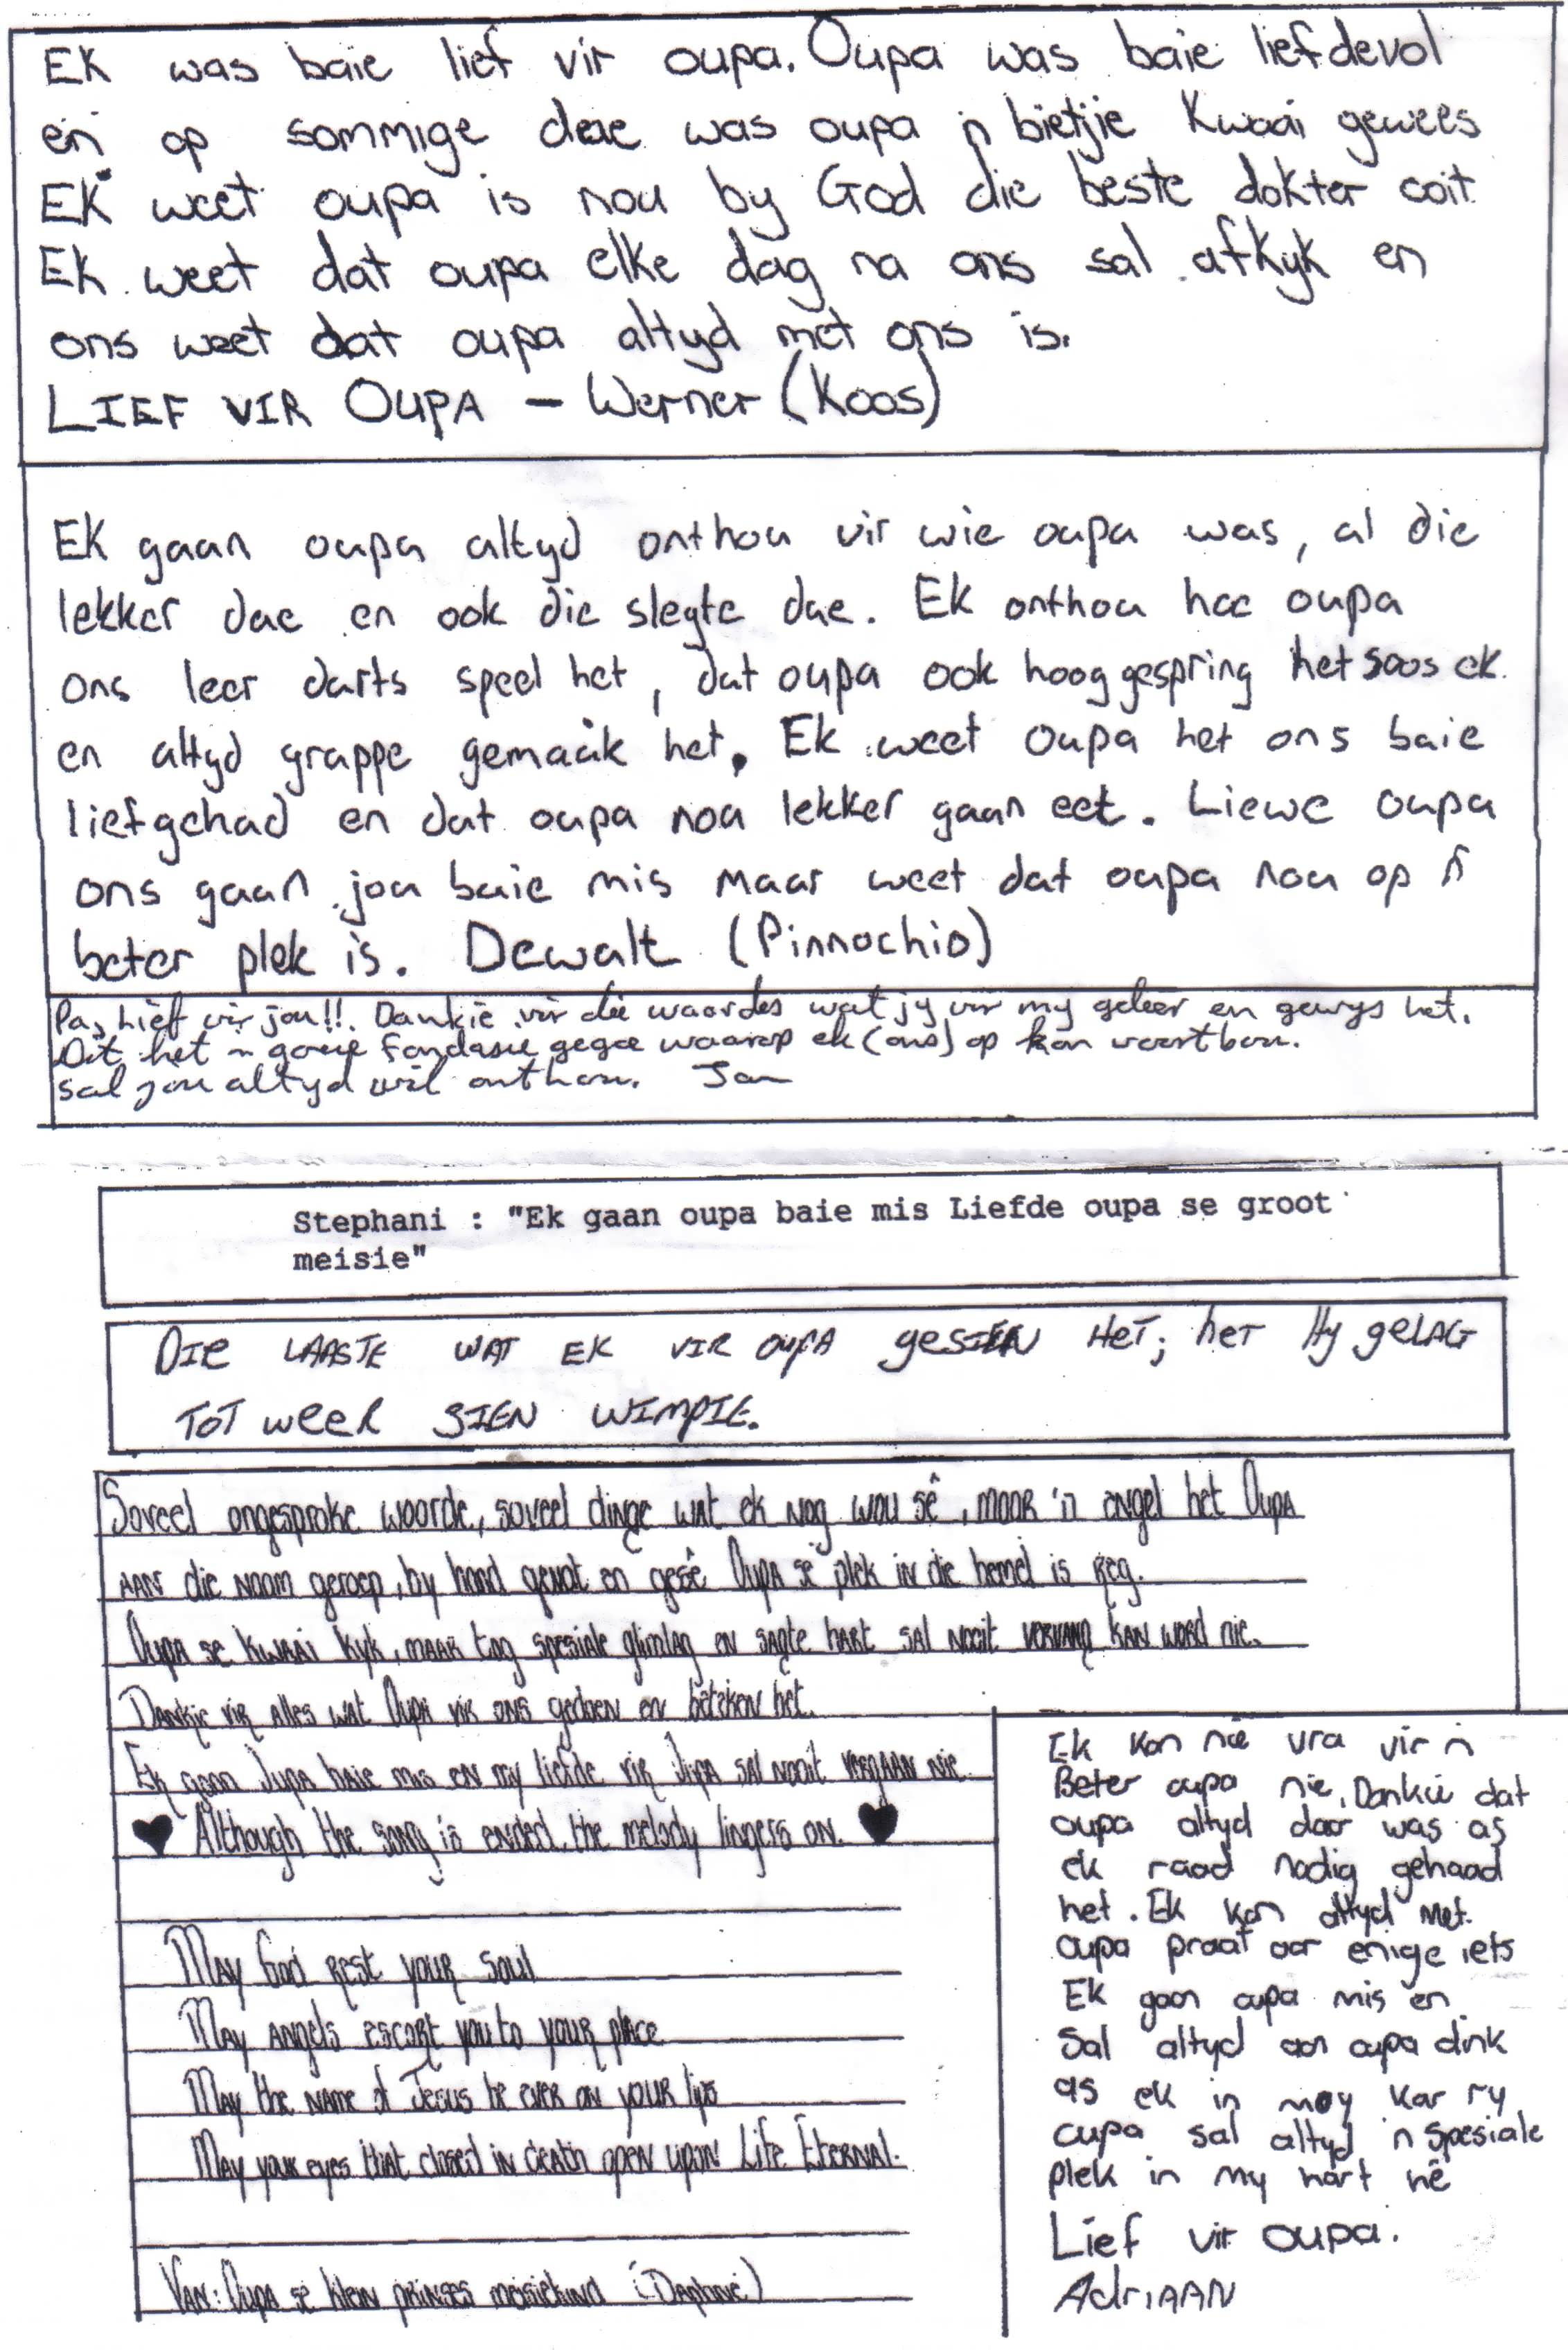 Ek was baie lief vir oupa. Oupa was baie liefdevol
en op sommige dae was oupa 'n bietjie Kwaai gewees
Ek weet oupa is nou by God die beste dokter ooit
Ek weet dat oupa elke dag na ons sal afkyk en
ons weet dat oupa altyd met ons is.
LIEF VIR OUPA - Werner (Koos)
Ek gaan oupa altyd onthou vir wie oupa was, al die
lekker dae en ook die slegte dae. Ek onthou hoe oupa
ons leer darts speel het, dat oupa ook hoog gespring het soos ek
en altyd grappe gemaak het. Ek weet oupa het ons baie
liefgehad en dat oupa nou lekker gaan eet. Liewe oupa
ons gaan jou baie mis maar weet dat oupa nou op 'n
beter plek is. Dewalt (Pinnochio)
Pa, Lief vir jou!!. Dankie vir die waardes wat jy vir my geleer en gewys het.
Dit het 'n goeie fondasie gegee waarop ek (ons) op kan voortbou.
sal jou altyd wil onthou. Jan
Stephani : "Ek gaan oupa baie mis Liefde oupa se groot
meisie"
DIE LAASTE WAT EK VIR OUPA geSIEN HeT; heT Hy geLAG
TOT weeR SIEN WIMPIE.
Soveel ongesproke woorde, soveel dinge wat ek nog wou sê, maar 'n engel het Oupa
aan die naam geroep, by hand gevat en gesê Oupa se plek in die hemel is reg.
Oupa se kwaai kyk, maar tog spesiale glimlag en sagte hart sal nooit vervang kan word nie.
Dankie vir alles wat Oupa vir ons gedoen en beteken het.
Ek gaan Oupa baie mis en my liefde vir Oupa sal nooit vergaan nie.
♥ Although the song is ended, the melody lingers on. ♥
May God rest your soul
May angels escort you to your place
May the name of Jesus be ever on your lips
May your eyes that closed in death open upon Life Eternal.
Van: Oupa se klein prinses meisiekind (Daphné)
Ek kon nie vra vir 'n
Beter oupa nie. Dankie dat
oupa altyd daar was as
ek raad nodig gehaad
het. Ek kon altyd met
oupa praat oor enige iets
Ek gaan oupa mis en
Sal altyd aan oupa dink
as ek in moy kar ry
oupa sal altyd 'n spesiale
plek in my hart hê
Lief vir oupa.
AdriAAN